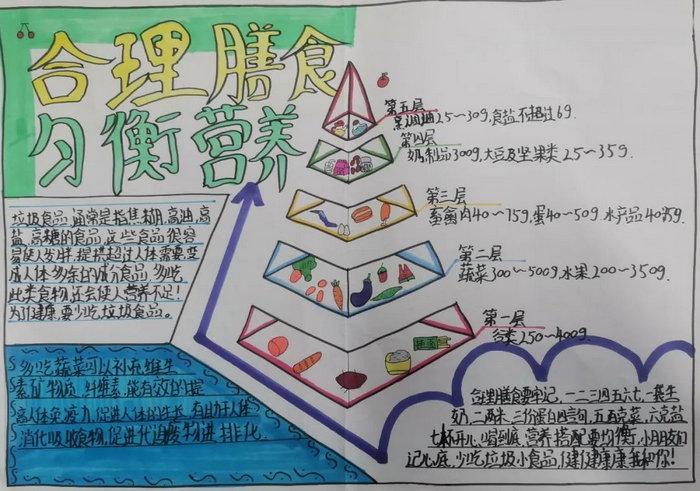 合理膳食
匀衡营养
第五层
烹调油25~30g,食盐不超过6g.
第四层
奶制品300g,大豆及坚果类25~35g.
第三层
畜禽肉40~75g,蛋40~50g,水产品40
第二层
蔬菜300~500g,水果200~350g.
第一层
谷类250~400g.
垃圾食品,通常是指焦糊,高油,高
盐,高糖的食品,这些食品很容
易使人发胖,提供超过人体需要,变
成人体多余的成分食品,多吃
此类食物,还会使人营养不足!
为了健康,要少吃垃圾食品。
多吃蔬菜可以补充维生
素矿物质,纤维素,能有效的提
高人体免疫力,促进人体的生长,有助于人体
消化吸收食物,促进代谢废物进排化.
合理膳食要牢记,一二三四五六七,一袋生
奶,二两米,三份蛋白四言句,五百克菜,六克盐
七杯开水喝到底,营养搭配要均衡,小朋友们
记心底,少吃垃圾小食品,健健康康我和你!